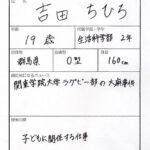 吉田 ちひろ
年齢
19歳
生活科学部 2年
群馬県
O型
160cm
関東学院大学ラグビー部の大麻事件
子どもに関係する仕事